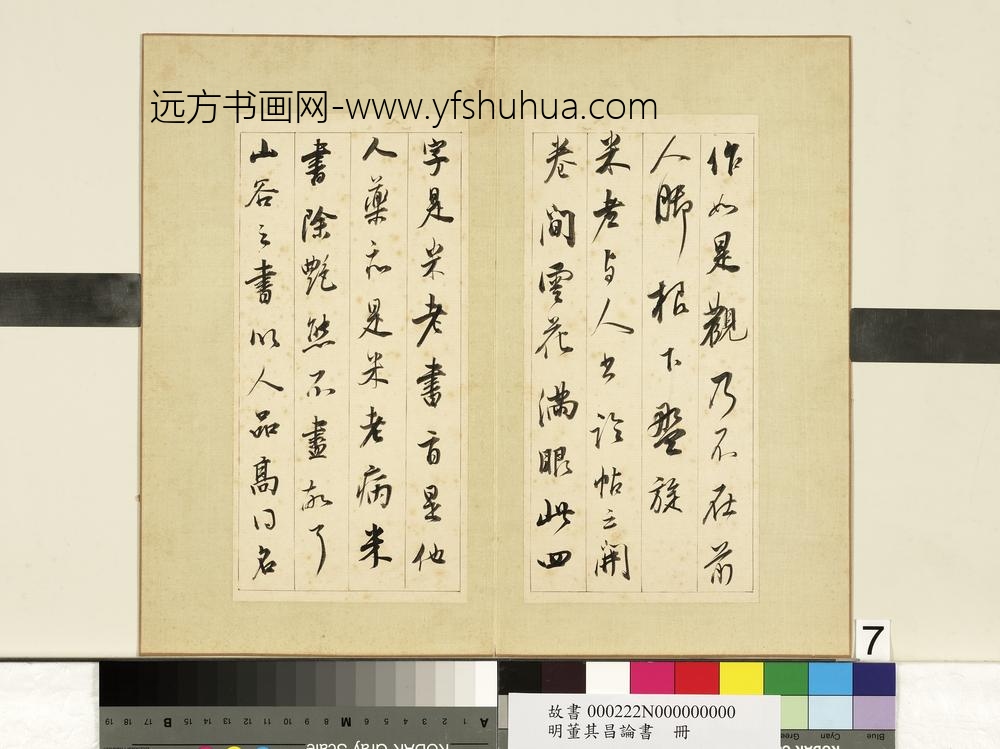 远方书画网-www.yfshuhua.com
作如是觀乃不在前
人脚根下盤旋
米老与人書論帖云開
卷間雲花滿眼此四
字是米老書旨是他
人藥是米老病米
書除艷態不盡故了
山谷之書以人品高同名
7
故書 000222N000000000
明董其昌論書 冊
19 18 17 B 16 15 14 13 12 11 10 9 8 M 7 6 5 4 3 2 1 A
KODAK Gray Scale
Green Cyan Blue